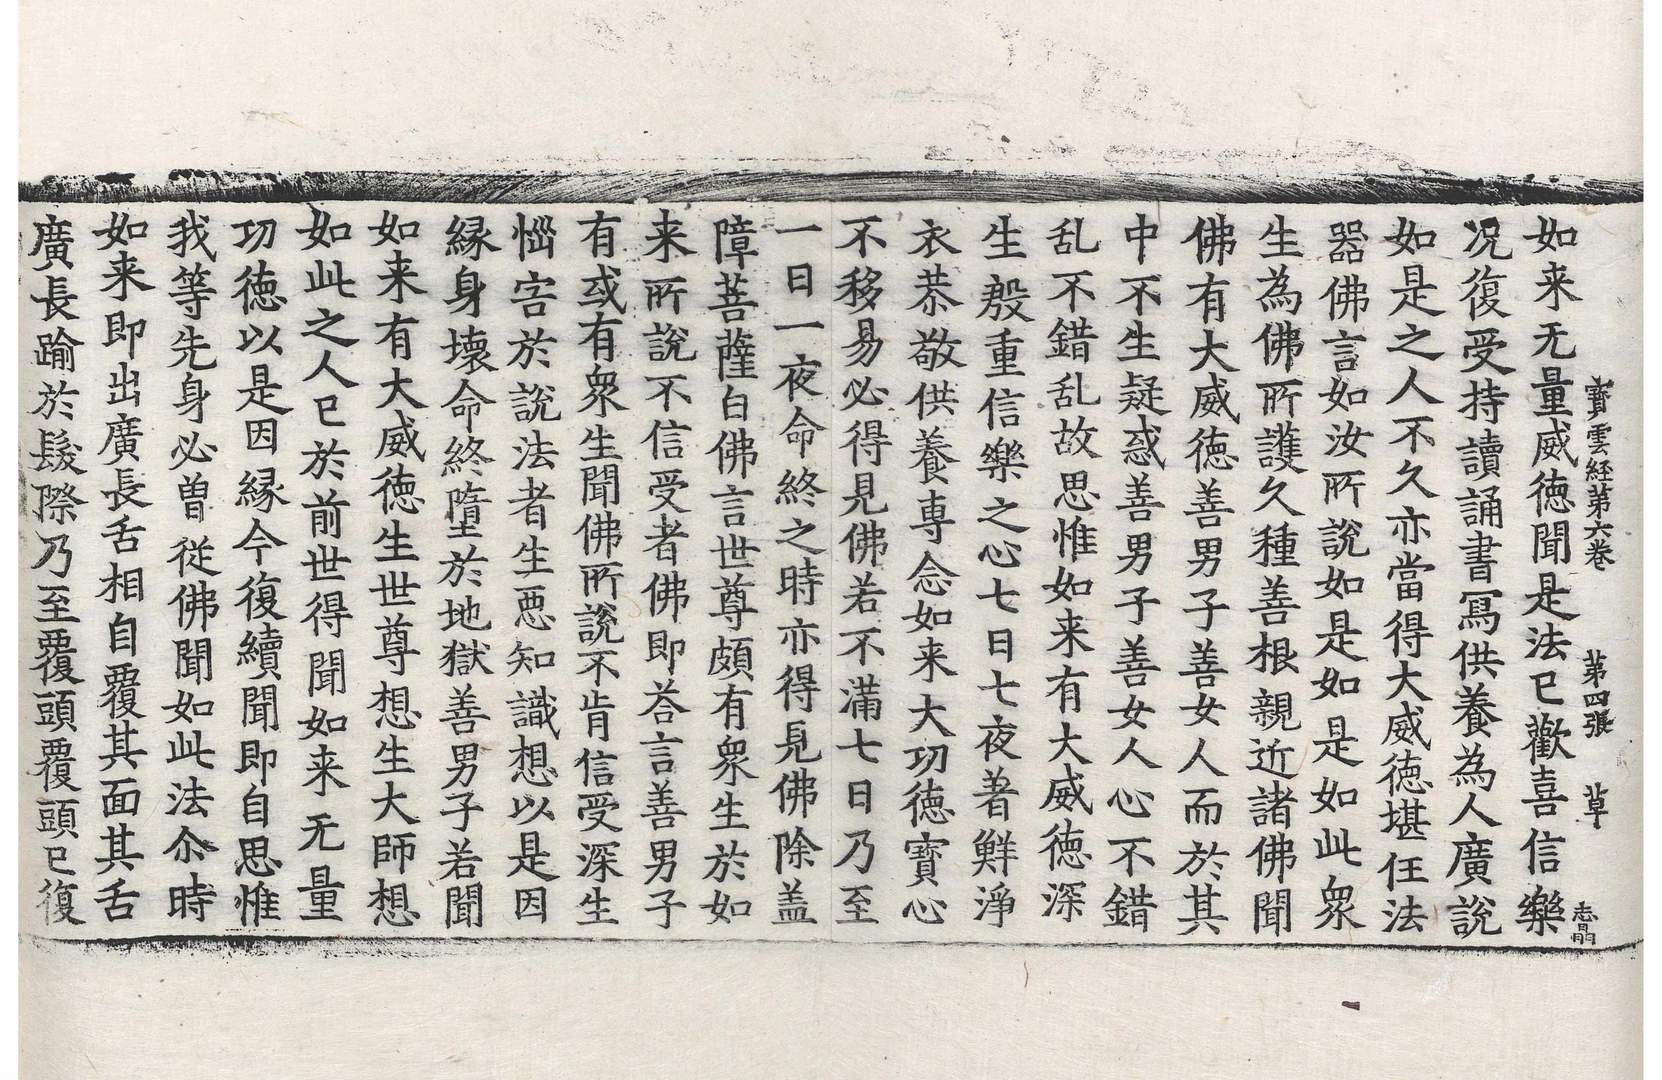 寶雲経第六巻　第四張　草
志晶
如来无量威徳聞是法已歡喜信樂
况復受持讀誦書冩供養為人廣說
如是之人不久亦當得大威徳堪任法
器佛言如汝所說如是如是如此衆
生為佛所護久種善根親近諸佛聞
佛有大威徳善男子善女人而於其
中不生疑惑善男子善女人心不錯
乱不錯乱故思惟如来有大威徳深
生慇重信樂之心七日七夜著鮮淨
衣恭敬供養専念如来大功徳寳心
不移易必得見佛若不滿七日乃至
一日一夜命終之時亦得見佛除盖
障菩薩白佛言世尊頗有衆生於如
来所說不信受者佛即荅言善男子
有或有衆生聞佛所說不肯信受深生
惱害於說法者生悪知識想以是因
縁身壊命終墮於地獄善男子若聞
如来有大威徳生世尊想生大師想
如此之人已於前世得聞如来无量
功徳以是因縁今復續聞即自思惟
我等先身必曽從佛聞如此法尒時
如来即出廣長舌相自覆其面其舌
廣長踰於髮際乃至覆頭覆頭已復